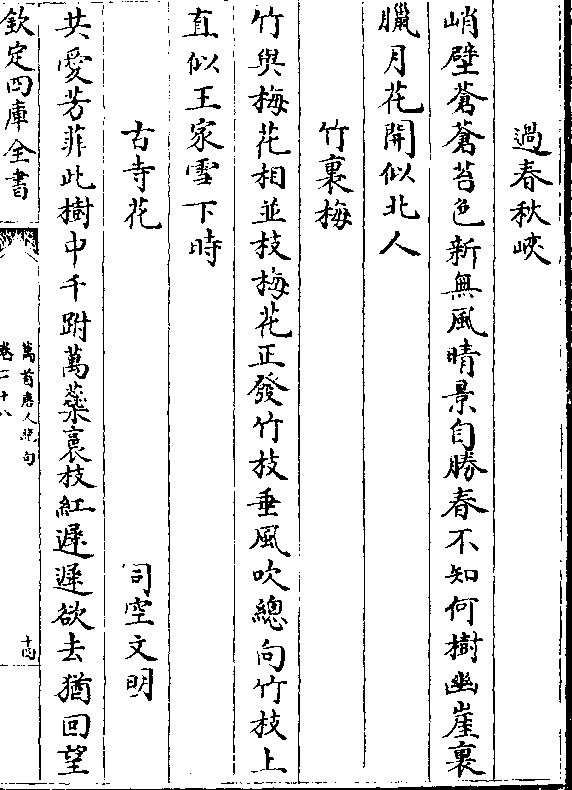 過春秋峽
峭壁蒼蒼苔色新無風晴景自勝春不知何樹幽崖裏
臘月花開似北人
竹裏梅
竹與梅花相並枝梅花正發竹枝垂風吹總向竹枝上
直似王家雪下時
古寺花　司空文明
共愛芳菲此樹中千跗萬蘂裹枝紅遲遲欲去猶回望
欽定四庫全書
萬首唐人絶句
卷二十八
十四